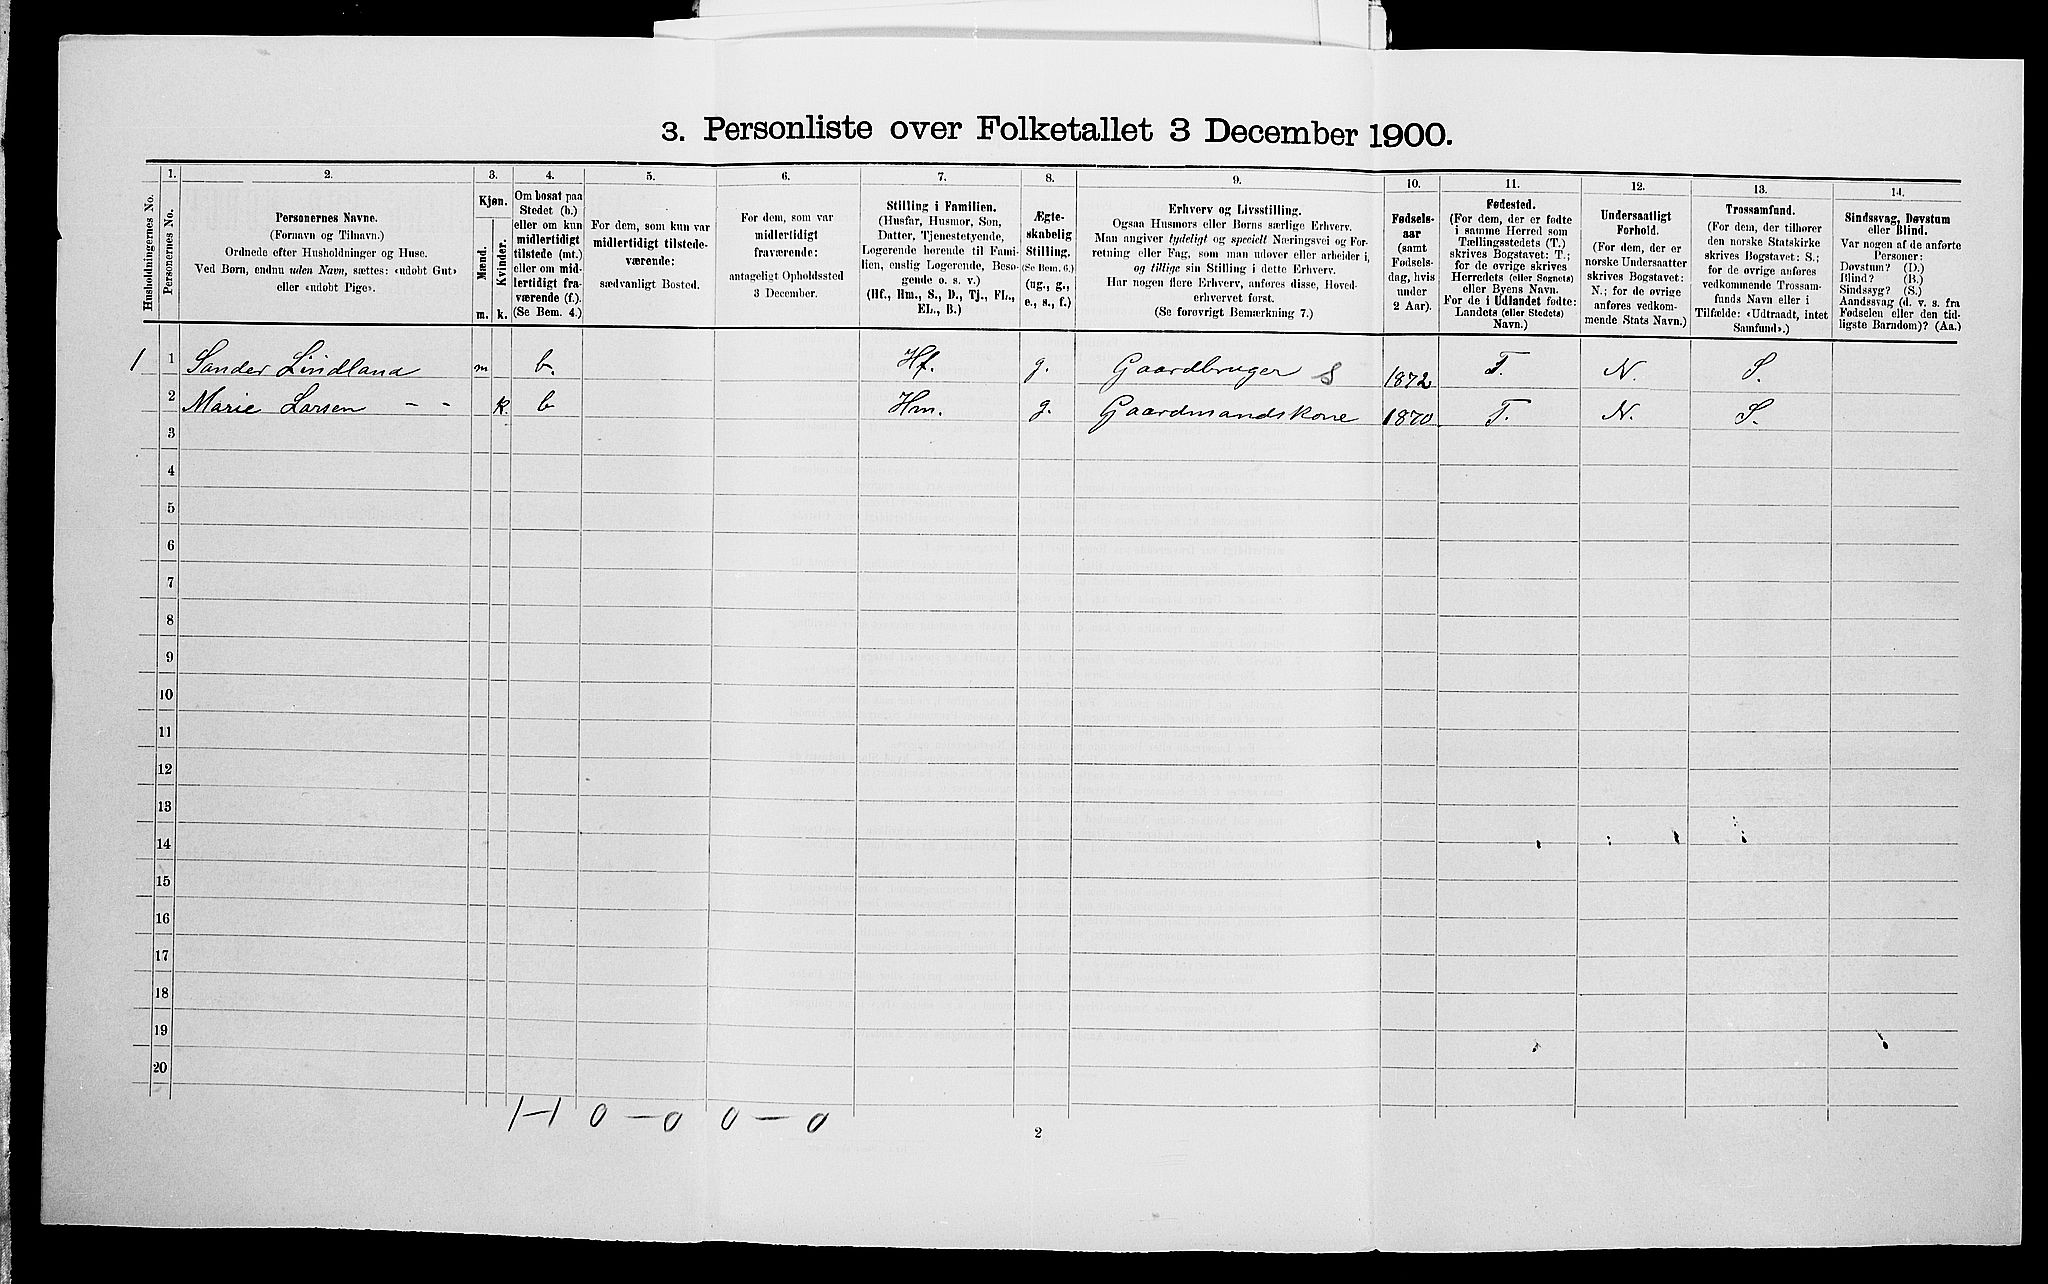 3. Personliste over Folketallet 3 December 1900.
Husholdningernes No.
1.
Personernes No.
2.
Personernes Navne.
(Fornavn og Tilnavn.)
Ordnede efter Husholdninger og Huse.
Ved Børn, endnu uden Navn, sættes: «udøbt Gut»
eller «udøbt Pige».
3.
Kjøn.
Mænd.
Kvinder.
m.
k.
4.
Om bosat paa
Stedet (b.)
eller om kun
midlertidigt
tilstede (mt.)
eller om mid-
lertidigt fra-
værende (f.).
(Se Bem. 4.)
5.
For dem, som kun var
midlertidigt tilstede-
værende:
sædvanligt Bosted.
6.
For dem, som var
midlertidigt
fraværende:
antageligt Opholdssted
3 December.
7.
Stilling i Familien.
(Husfar, Husmor, Søn,
Datter, Tjenestetyende,
Logerende hørende til Fami-
lien, enslig Logerende, Besø-
gende o. s. v.)
(Hf., Hm., S., D., Tj., FL.,
EL., B.)
8.
Ægte-
skabelig
Stilling.
(Se Bem. 6.)
(ug., g.,
e., s., f.)
9.
Erhverv og Livsstilling.
Ogsaa Husmors eller Børns særlige Erhverv.
Man angiver tydeligt og specielt Næringsvei og For-
retning eller Fag, som man udøver eller arbeider i,
og tillige sin Stilling i dette Erhverv.
Har nogen flere Erhverv, anføres disse, Hoved-
erhvervet først.
(Se forøvrigt Bemærkning 7.)
10.
Fødsels-
aar
(samt
Fødsels-
dag, hvis
under
2 Aar).
11.
Fødested.
(For dem, der er fødte
i samme Herred som
Tællingsstedets (T.)
skrives Bogstavet: T.;
for de øvrige skrives
Herredets (eller Sognets)
eller Byens Navn.
For de i Udlandet fødte:
Landets (eller Stedets)
Navn.)
12.
Undersaatligt
Forhold.
(For dem, der er
norske Undersaatter
skrives Bogstavet:
N.; for de øvrige
anføres vedkom-
mende Stats Navn.)
13.
Trossamfund.
(For dem, der tilhører
den norske Statskirke
skrives Bogstavet: S.;
for de øvrige anføres
vedkommende Trossam-
funds Navn eller i
Tilfælde: «Udtraadt, intet
Samfund».)
14.
Sindssvag, Døvstum
eller Blind.
Var nogen af de anførte
Personer:
Døvstum? (D.)
Blind? (B.)
Sindssyg? (S.)
Aandssvag (d. v. s. fra
Fødselen eller den tid-
ligste Barndom)? (Aa.)
1 1 Sander Lindland m b. Hf. g. Gaardbruger S 1872 T. N. S.
2 Marie Larsen - - k. b Hm. g. Gaardmandskone 1870 T. N. S.
3
4
5
6
7
8
9
10
11
12
13
14
15
16
17
18
19
20
1-1 0 - 0 0 - 0
2